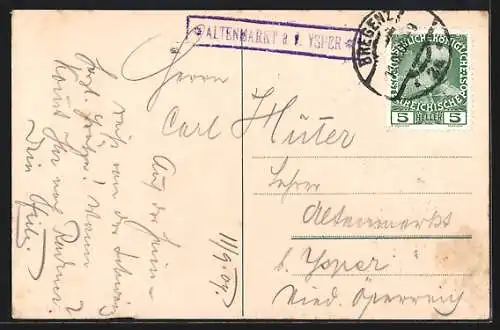 ALTENMARKT a. d. YSPER
BREGENZ
KAISERLICHE KÖNIGLICHE
ÖSTERREICHISCHE POST
5 HELLER 5
Herrn
Carl Hüter
Lehrer
Altenmarkt
b. Ysper
Nied. Österreich
11/9.09.
Auf der Heim-
reise von der Schweiz
herzl. Grüße! Wann
kommt Ihr nach
Dein